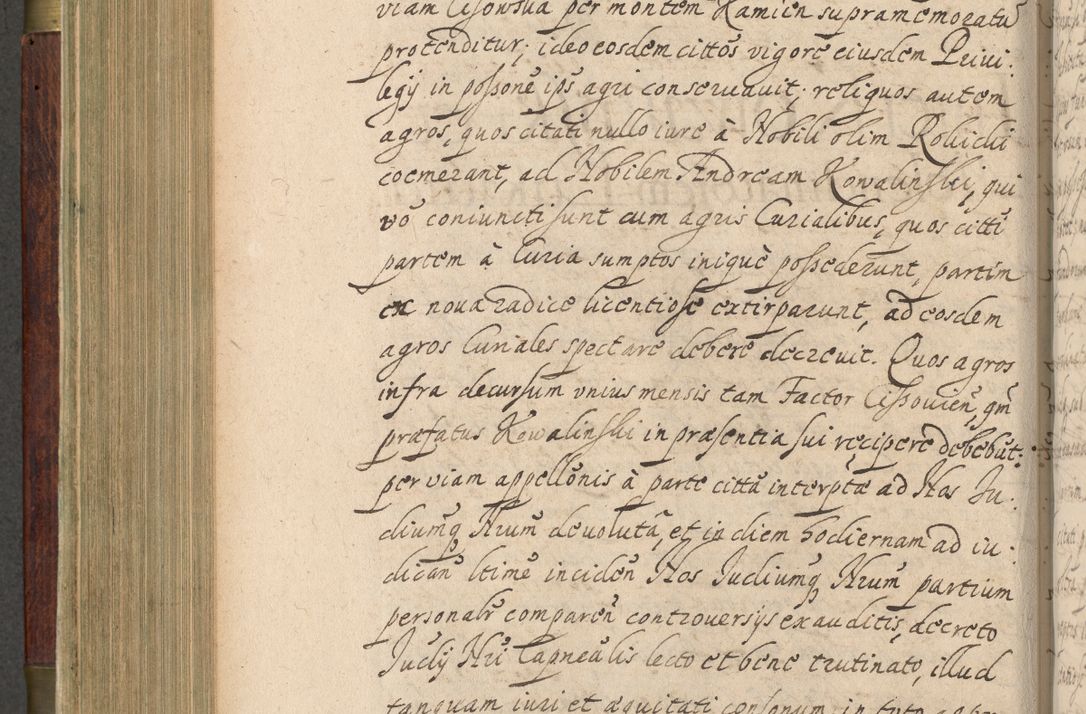 viam Cisowska per montem Kamien supramemoratū
protenditur; ideo eosdem cittōs vigore eiusdem Priui:
legÿ in poſsonē ipš agri conseruauit; reliquos autem
agros, quos citati nullo iure à Nobili olim Rollicki
coemerant, ad Nobilem Andream Kowalinſki, qui
vō coniuncti sunt cum agris Curialibus, quos citti
partem à Curia sumptos iniquè poſsederunt, partim
ex noua radice licentiose extirparunt, ad eosdem
agros Curiales spectare debere decreuit. Quos agros
infra decursum vnius mensis tam Factor Ciſsouień, qm̄
præfatus Kowalinſki in præsentia sui recipere debebūt:
per viam appellōnis à parte cittā interptæ ad Nos Ju:
diumq̃ Nrum̄ deuolutā, et in diem hodiernam ad iu:
dicań ltimē incideń Nos Judiumq̃ Nrum̄ partium
personalr̄ compareń controuersÿs exauditis, decreto
Judÿ Nri Capnealis lecto et bene trutinato, illud
tanquam iuri et æquitati consonum in toto